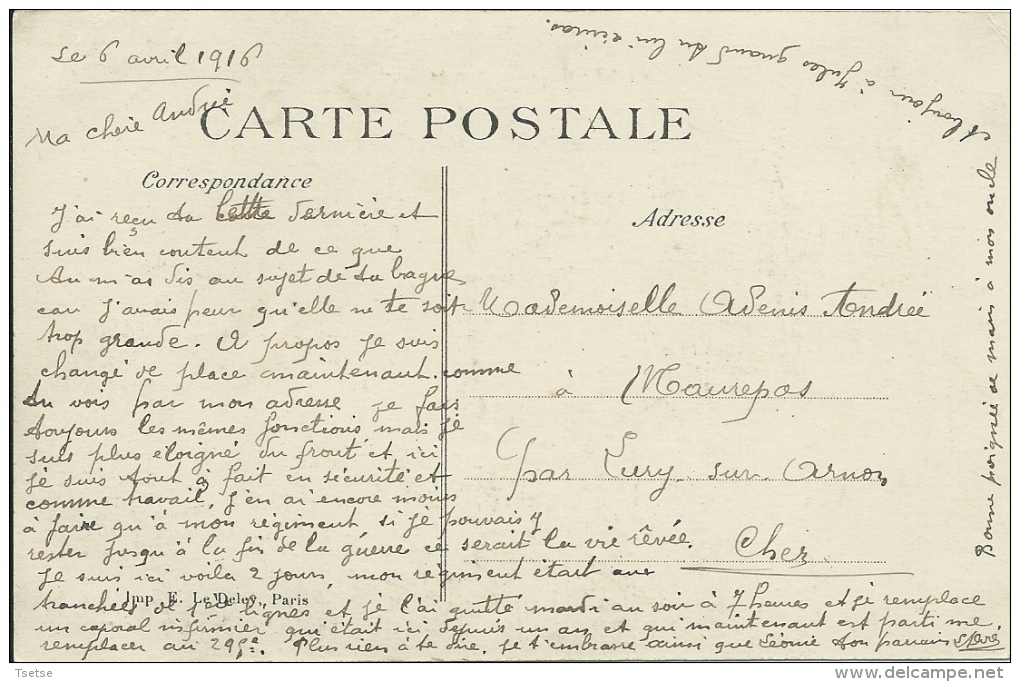 Le 6 avril 1916
Ma chère Andrée
CARTE POSTALE
Correspondance
J'ai reçu ta lettre dernière et
suis bien content de ce que
tu m'as dis au sujet de ta bague
car J'avais peur qu'elle ne te soit
trop grande. A propos je suis
changé de place maintenant. comme
tu vois par mon adresse je fais
toujours les mêmes fonctions mais je
suis plus éloigné du front et ici
je suis tout à fait en sécurité et
comme travail, j'en ai encore moins
à faire qu'à mon régiment si je pouvais y
rester jusqu'à la fin de la guerre ce serait la vie rêvée.
Je suis ici voila 2 jours, mon régiment était aux
tranchées de 1ères lignes et je l'ai quitté mardi au soir à 7 heures et je remplace
un caporal infirmier qui était ici depuis un an et qui maintenant est parti me
remplacer au 295e. Plus rien à te dire. Je t'embrasse ainsi que Léonie ton parrain
Imp. E. Le Deley, Paris
Adresse
Mademoiselle Adenis Andrée
à Maurepas
par Lury sur Arnon
Cher
Bonne poignée de main à mon oncle
et bonjour à Jules quand tu lui écriras.
Tsetse
delcampe.net